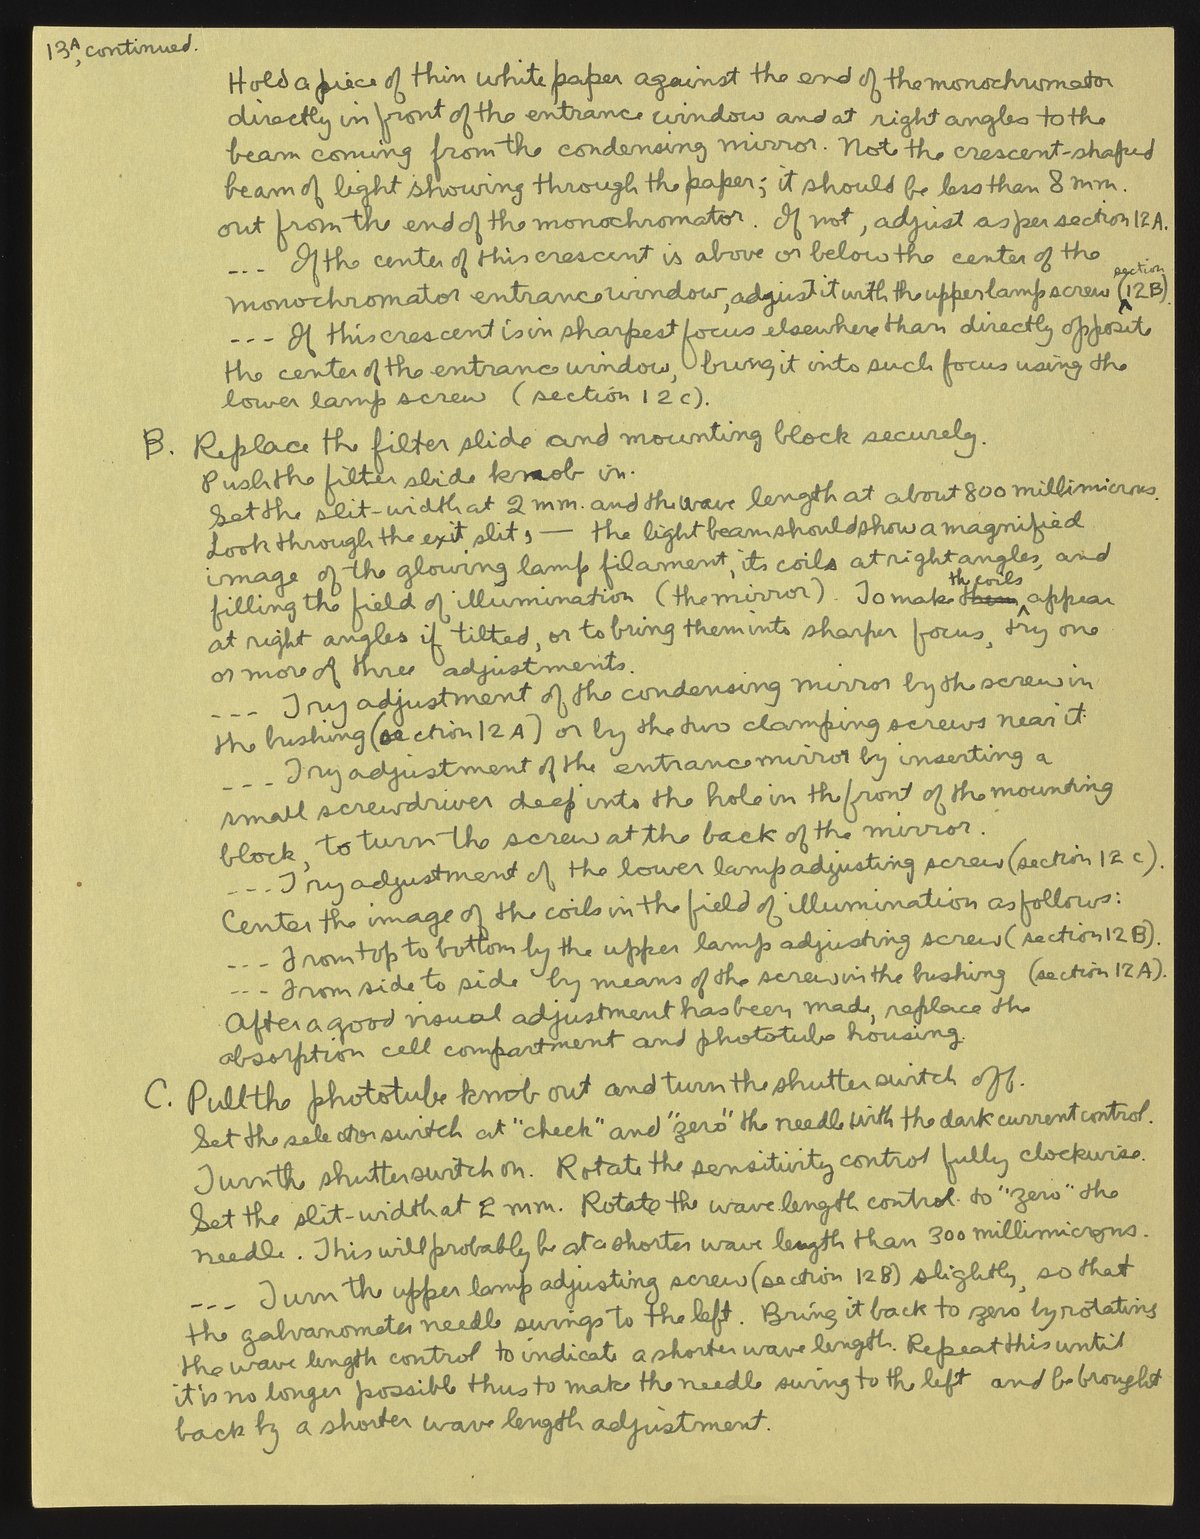 13A, continued.
Hold a piece of thin white paper against the end of the monochromator
directly in front of the entrance window and at right angles to the
beam coming from the condensing mirror. Note the crescent-shaped
beam of light showing through the paper; it should be less than 8 mm.
out from the end of the monochromator. If not, adjust as per section 12A.
--- If the center of this crescent is above or below the center of the
monochromator entrance window, adjust it with the upper lamp screw (section 12B).
--- If this crescent is in sharpest focus elsewhere than directly opposite
the center of the entrance window, bring it into such focus using the
lower lamp screw (section 12C).
B. Replace the filter slide and mounting block securely.
Push the filter slide knob in.
Set the slit-width at 2 mm. and the wave length at about 800 millimicrons.
Look through the exit slit, — the light beam should show a magnified
image of the glowing lamp filament, its coils at right angles, and
filling the field of illumination (the mirror). To make them the coils appear
at right angles if tilted, or to bring them into sharper focus, try one
or more of three adjustments.
--- Try adjustment of the condensing mirror by the screw in
the bushing (section 12A) or by the two clamping screws near it.
--- Try adjustment of the entrance mirror by inserting a
small screwdriver deep into the hole in the front of the mounting
block, to turn the screw at the back of the mirror.
--- Try adjustment of the lower lamp adjusting screw (section 12C).
Center the image of the coils in the field of illumination as follows:
--- From top to bottom by the upper lamp adjusting screw (section 12B).
--- From side to side by means of the screw in the bushing (section 12A).
After a good visual adjustment has been made, replace the
absorption cell compartment and phototube housing.
C. Pull the phototube knob out and turn the shutter switch off.
Set the selector switch at "check" and "zero" the needle with the dark current control.
Turn the shutter switch on. Rotate the sensitivity control fully clockwise.
Set the slit-width at 2 mm. Rotate the wave length control to "zero" the
needle. This will probably be at a shorter wave length than 300 millimicrons.
--- Turn the upper lamp adjusting screw (section 12B) slightly, so that
the galvanometer needle swings to the left. Bring it back to zero by rotating
the wave length control to indicate a shorter wave length. Repeat this until
it is no longer possible thus to make the needle swing to the left and be brought
back by a shorter wave length adjustment.